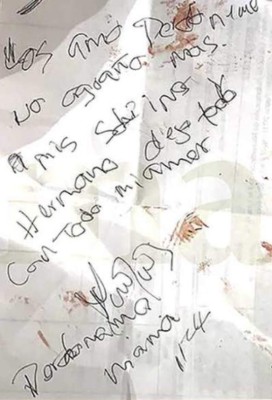 Los amo Perdonenme
no aguanto mas.
A mis sobrinos
Hermano dejo todo
Con todo mi amor
Perdoname
mama